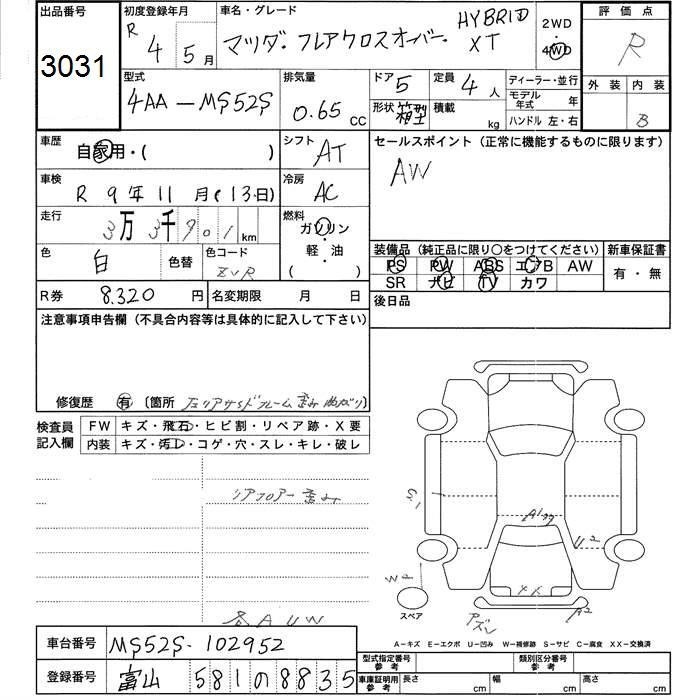 出品番号 初度登録年月 車名・グレード 評価点
3031 R 4 5月 マツダ・フレアクロスオーバー HYBRID XT 2WD 4WD R
型式 排気量 ドア 5 定員 4人 ディーラー・並行 外装 内装
4AA-MS52S 0.65 CC 形状 箱型 積載 kg モデル年式 年 B
ハンドル 左・右
車歴 自家用・( ) シフト AT セールスポイント(正常に機能するものに限ります)
車検 R 9年11月(13日) 冷房 AC AW
走行 3万3千901km 燃料 ガソリン・軽・油 ( )
色 白 色替 色コード ZVR
装備品(純正品に限り〇をつけてください) 新車保証書
PS PW ABS エアB AW 有・無
SR ナビ TV カワ
R券 8.320円 名変期限 月 日 後日品
注意事項申告欄(不具合内容等は具体的に記入して下さい)
修復歴 有 〔箇所 左リアサイドフレーム歪み 〕
検査員記入欄 FW キズ・飛石・ヒビ割・リペア跡・X要
内装 キズ・汚し・コゲ・穴・スレ・キレ・破レ
リアフロアー歪み
S1
U2
W2
スペア
アズレ
A2
各AUW
A-キズ E-エクボ U-凹み W-補修跡 S-サビ C-腐食 XX-交換済
車台番号 MS52S-102952
型式指定番号 参考 類別区分番号 参考
登録番号 富山 581の8835
車庫証明用 参考 長さ cm 幅 cm 高さ cm